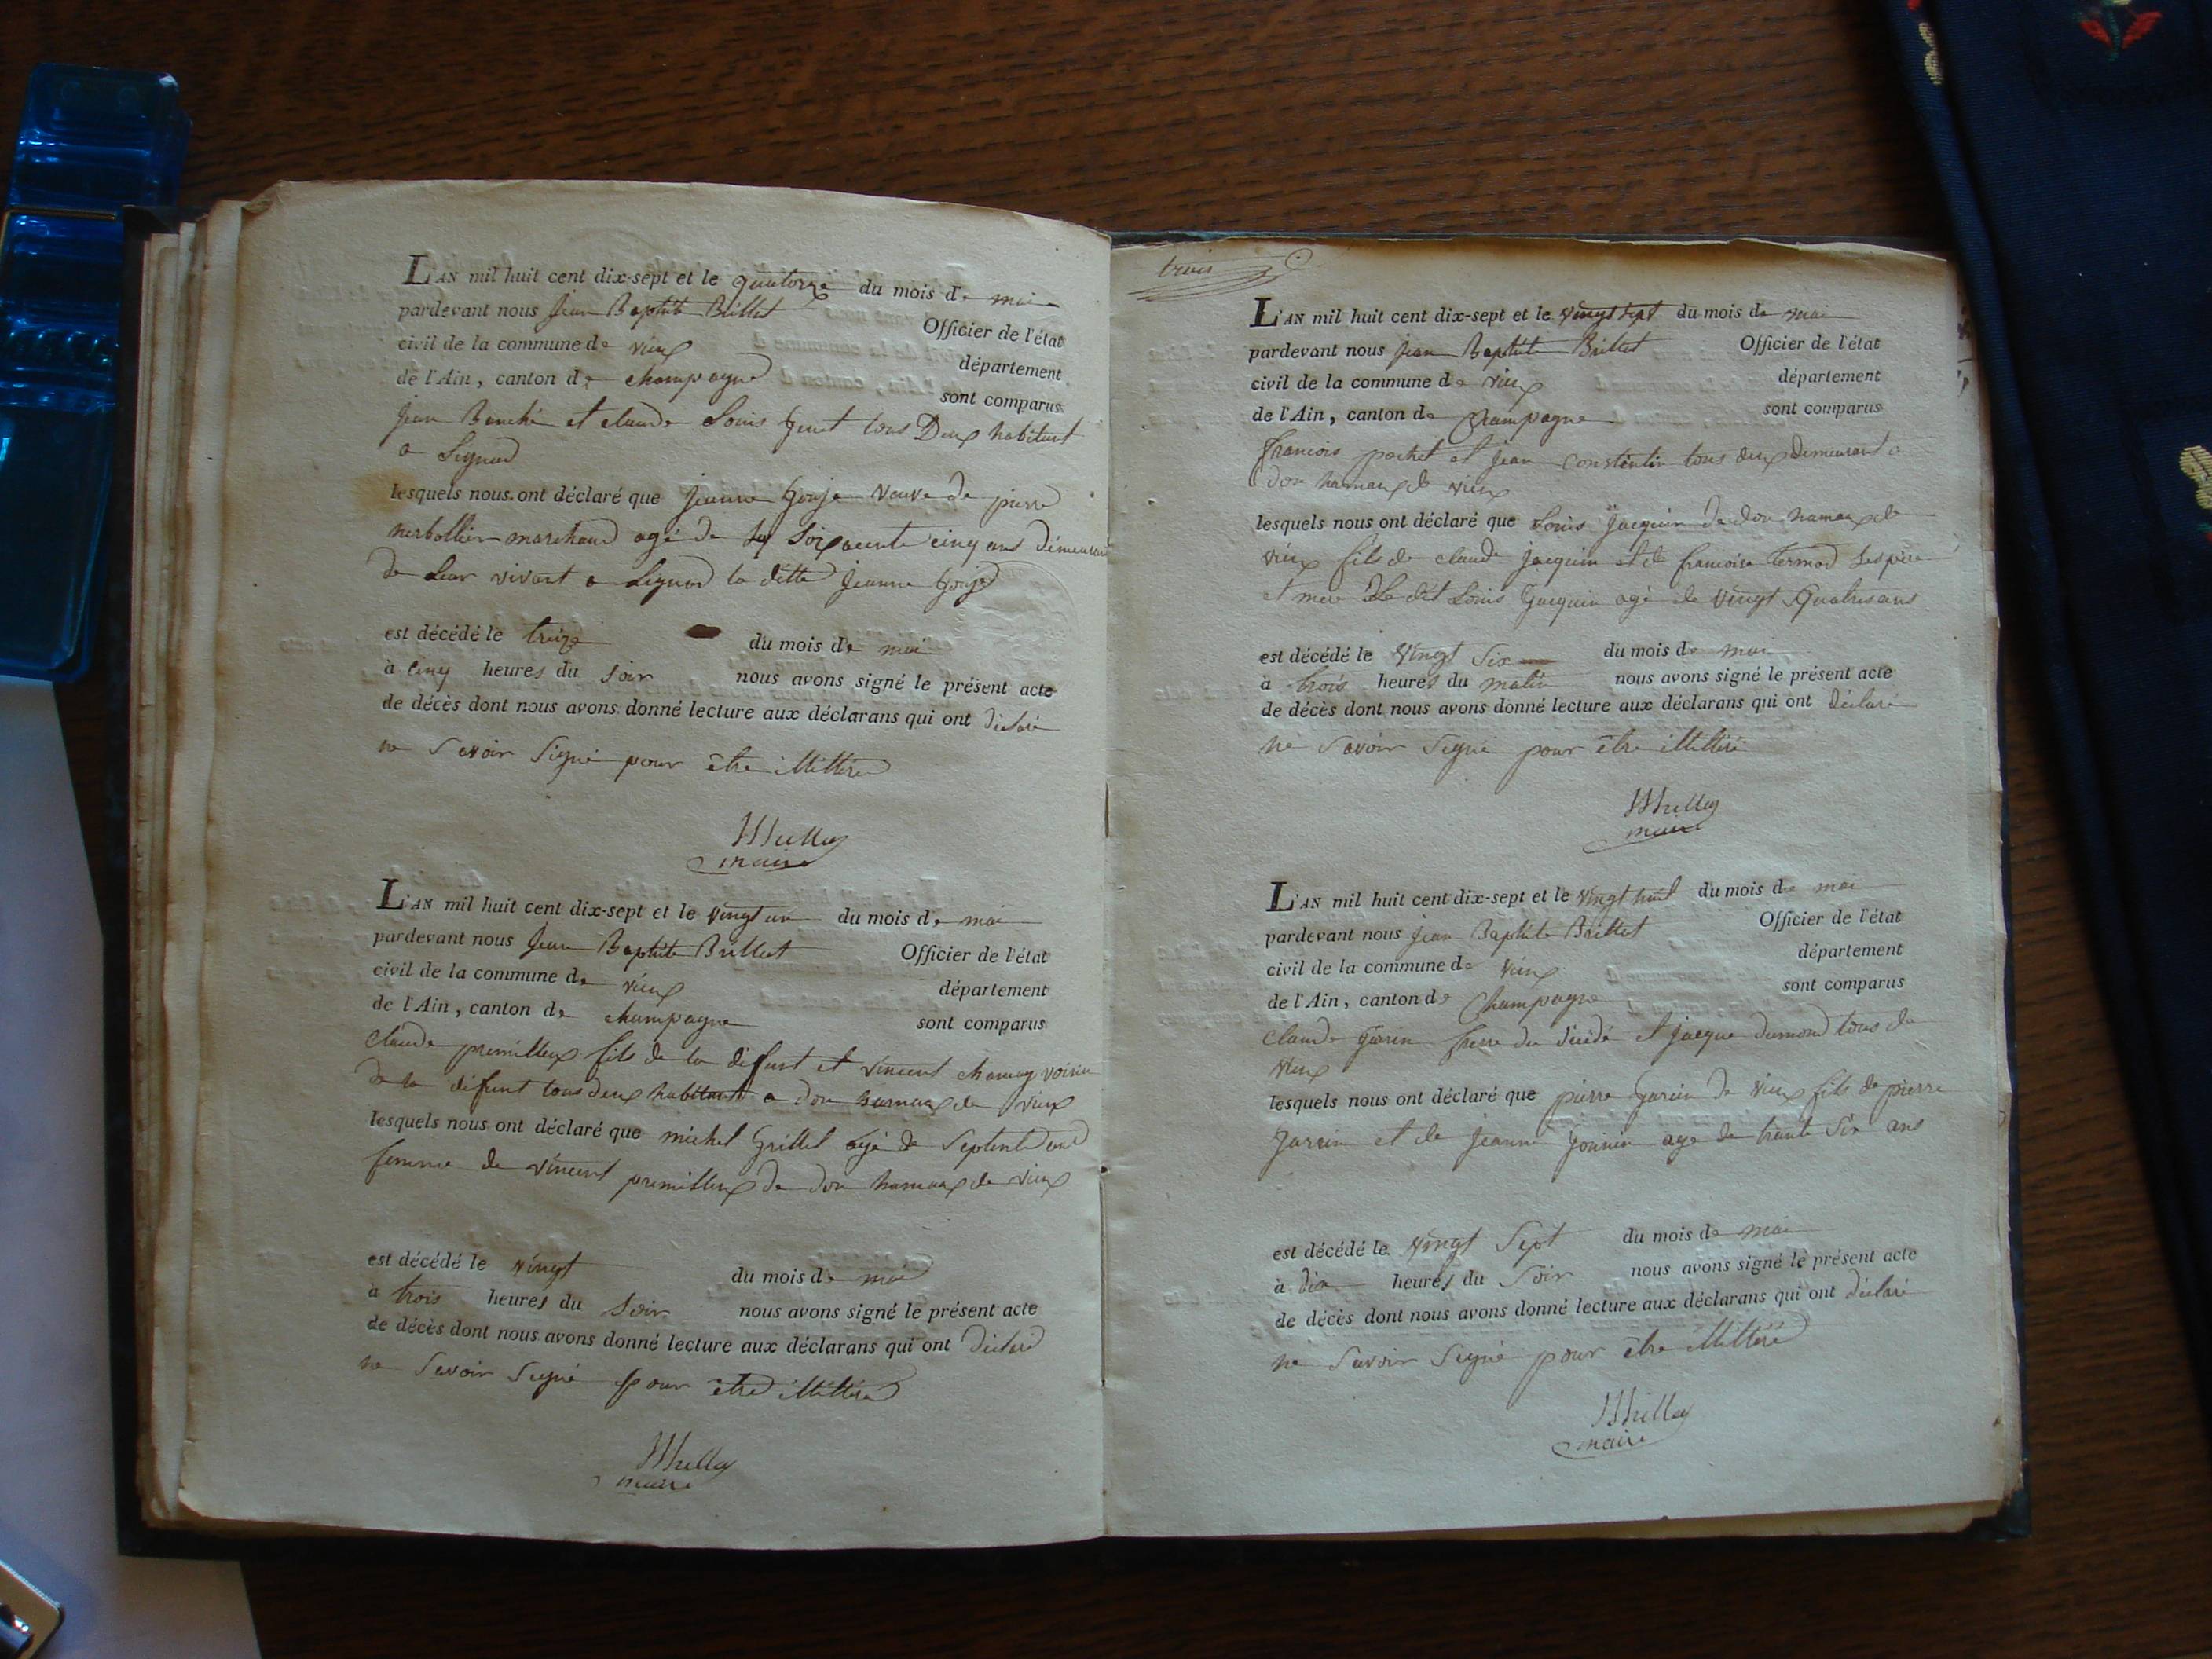 L'AN mil huit cent dix-sept et le quatorze du mois de mai
pardevant nous Jean Baptiste Brillet Officier de l'état
civil de la commune de vieux département
de l'Ain, canton de champagne sont comparus
jean et claude Louis tous Deux habitant
a Lignod
lesquels nous ont déclaré que jeanne Gouje veuve de pierre
marchand agé de soixante cinq ans démeurant
de Leur vivant a Lignod la ditte jeanne Gouje
est décédé le treize du mois de mai
à cinq heures du soir nous avons signé le présent acte
de décès dont nous avons donné lecture aux déclarans qui ont déclaré
ne Savoir Signé pour être illittéré
maire
L'AN mil huit cent dix-sept et le vingt un du mois de mai
pardevant nous Jean Baptiste Brillet Officier de l'état
civil de la commune de vieux département
de l'Ain, canton de champagne sont comparus
claude premilleux fils de la défunt et vincent voisin
de la défunt tous deux habitant a don hamaux de vieux
lesquels nous ont déclaré que michel Grillet agé de Septente ans
femme de vincent premilleux de don hamaux de vieux
est décédé le vingt du mois de mai
à trois heures du soir nous avons signé le présent acte
de décès dont nous avons donné lecture aux déclarans qui ont déclaré
ne Savoir Signé pour être illittéré
maire
trois
L'AN mil huit cent dix-sept et le vingt sept du mois de mai
pardevant nous jean Baptiste Brillet Officier de l'état
civil de la commune de vieux département
de l'Ain, canton de Champagne sont comparus
francois pochet et jean constentin tous deux Demeurant a
don hamaux de vieux
lesquels nous ont déclaré que Louis Jacquin de don hamaux de
vieux fils de claude jacquin et de francoise termod Ses père
et mere Le dit Louis Jacquin agé de vingt Quatres ans
est décédé le vingt Six du mois de mai
à trois heures du matin nous avons signé le présent acte
de décès dont nous avons donné lecture aux déclarans qui ont déclaré
ne Savoir Signé pour être illittéré
maire
L'AN mil huit cent dix-sept et le vingt huit du mois de mai
pardevant nous jean Baptiste Brillet Officier de l'état
civil de la commune de vieux département
de l'Ain, canton de Champagne sont comparus
claude Garin frere du décédé et jacque dumond tous de
vieux
lesquels nous ont déclaré que pierre Garin de vieux fils de pierre
Garin et de jeanne agé de trante Six ans
est décédé le vingt Sept du mois de mai
à dix heures du Soir nous avons signé le présent acte
de décès dont nous avons donné lecture aux déclarans qui ont déclaré
ne Savoir Signé pour être illittéré
maire